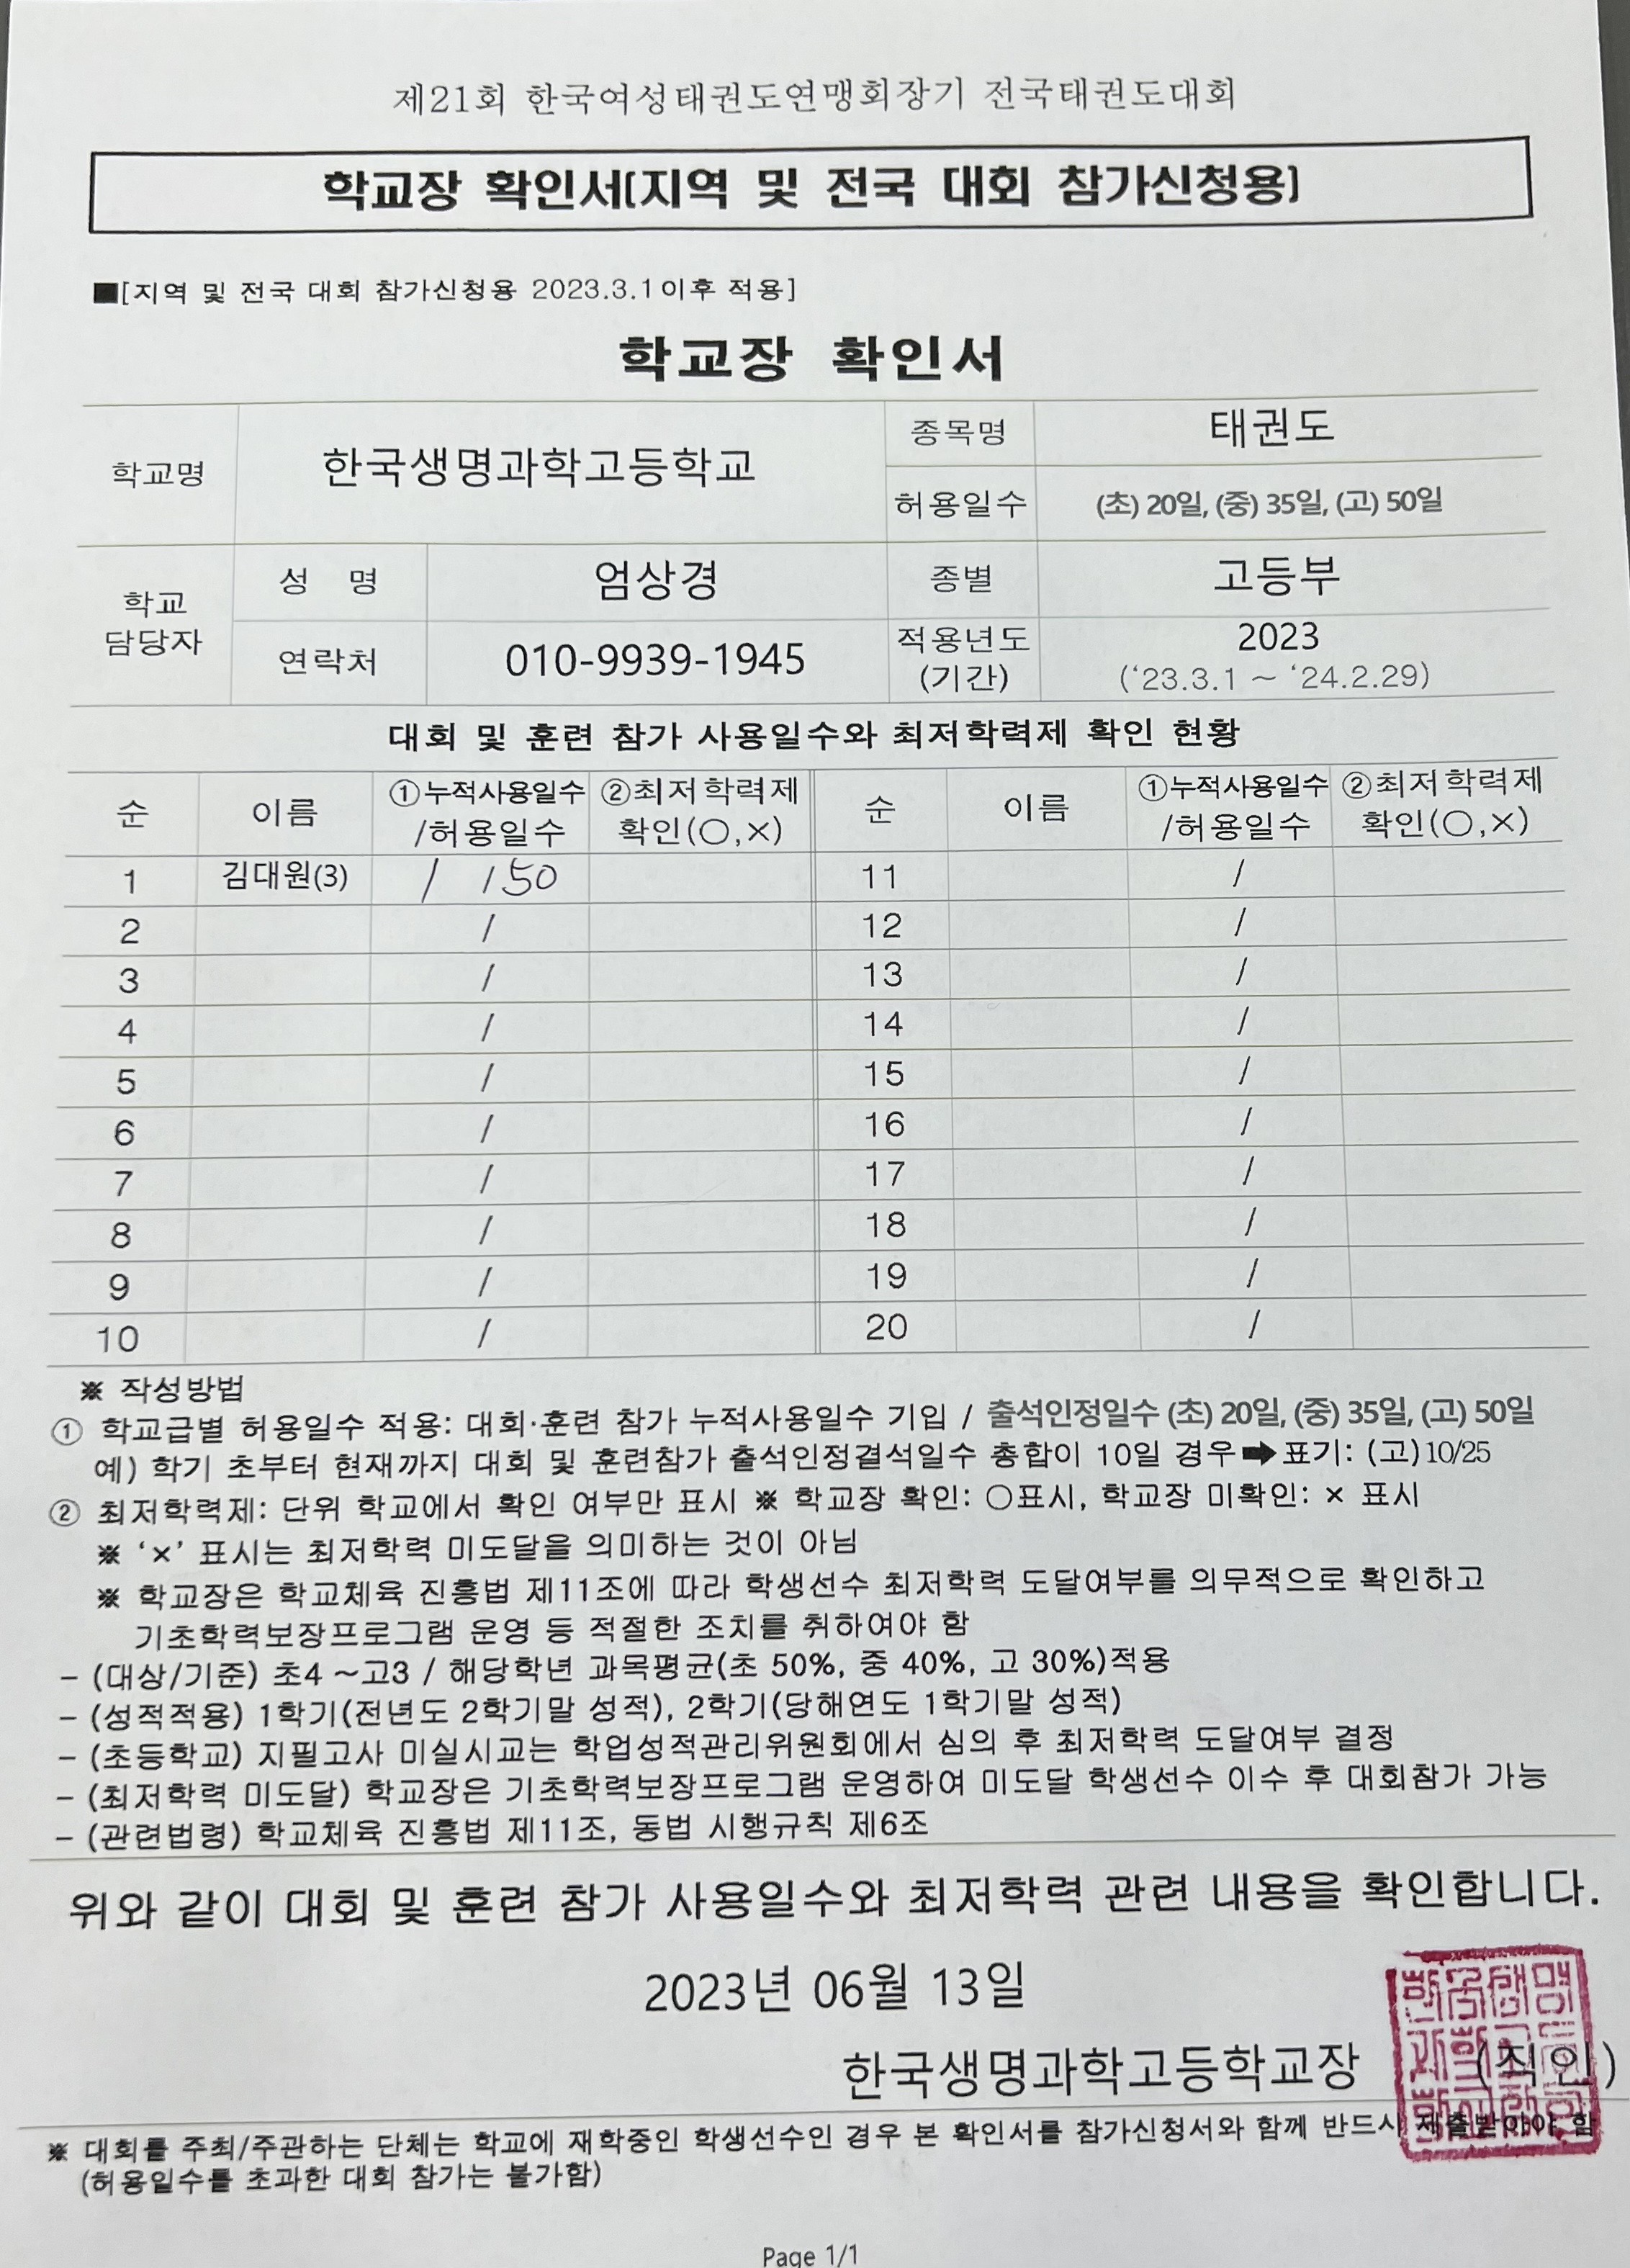 제21회 한국여성태권도연맹회장기 전국태권도대회
학교장 확인서(지역 및 전국 대회 참가신청용)
■[지역 및 전국 대회 참가신청용 2023.3.1이후 적용]
학교장 확인서
학교명 한국생명과학고등학교 종목명 태권도
허용일수 (초) 20일, (중) 35일, (고) 50일
학교 담당자 성 명 엄상경 종별 고등부
연락처 010-9939-1945 적용년도 (기간) 2023 (‘23.3.1 ~ ‘24.2.29)
대회 및 훈련 참가 사용일수와 최저학력제 확인 현황
순 이름 ①누적사용일수 /허용일수 ②최저학력제 확인(○,×) 순 이름 ①누적사용일수 /허용일수 ②최저학력제 확인(○,×)
1 김대원(3) 1 /50 11 /
2 / 12 /
3 / 13 /
4 / 14 /
5 / 15 /
6 / 16 /
7 / 17 /
8 / 18 /
9 / 19 /
10 / 20 /
※ 작성방법
① 학교급별 허용일수 적용: 대회·훈련 참가 누적사용일수 기입 / 출석인정일수 (초) 20일, (중) 35일, (고) 50일
예) 학기 초부터 현재까지 대회 및 훈련참가 출석인정결석일수 총합이 10일 경우➡표기: (고)10/25
② 최저학력제: 단위 학교에서 확인 여부만 표시 ※ 학교장 확인: ○표시, 학교장 미확인: × 표시
※ ‘×’ 표시는 최저학력 미도달을 의미하는 것이 아님
※ 학교장은 학교체육 진흥법 제11조에 따라 학생선수 최저학력 도달여부를 의무적으로 확인하고
기초학력보장프로그램 운영 등 적절한 조치를 취하여야 함
- (대상/기준) 초4 ~고3 / 해당학년 과목평균(초 50%, 중 40%, 고 30%)적용
- (성적적용) 1학기(전년도 2학기말 성적), 2학기(당해연도 1학기말 성적)
- (초등학교) 지필고사 미실시교는 학업성적관리위원회에서 심의 후 최저학력 도달여부 결정
- (최저학력 미도달) 학교장은 기초학력보장프로그램 운영하여 미도달 학생선수 이수 후 대회참가 가능
- (관련법령) 학교체육 진흥법 제11조, 동법 시행규칙 제6조
위와 같이 대회 및 훈련 참가 사용일수와 최저학력 관련 내용을 확인합니다.
2023년 06월 13일
한국생명과학고등학교장 (직인)
※ 대회를 주최/주관하는 단체는 학교에 재학중인 학생선수인 경우 본 확인서를 참가신청서와 함께 반드시 제출받아야 함
(허용일수를 초과한 대회 참가는 불가함)
Page 1/1